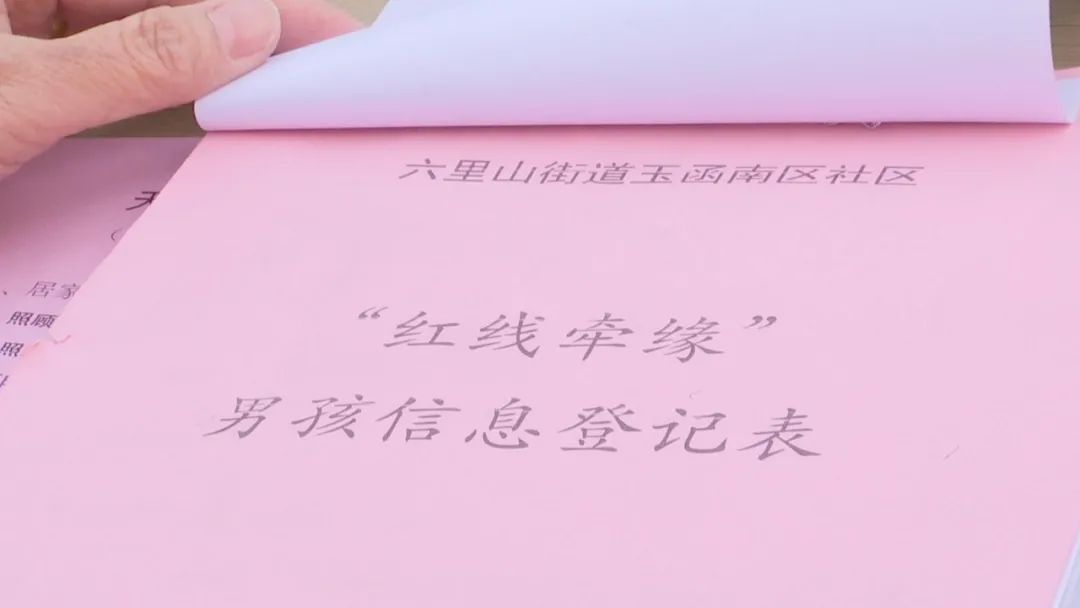 六里山街道玉函南区社区
“红线牵缘”
男孩信息登记表
、居家
照顾
照